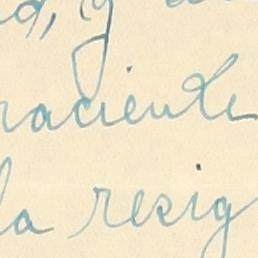 d, y a
raciente
la resig